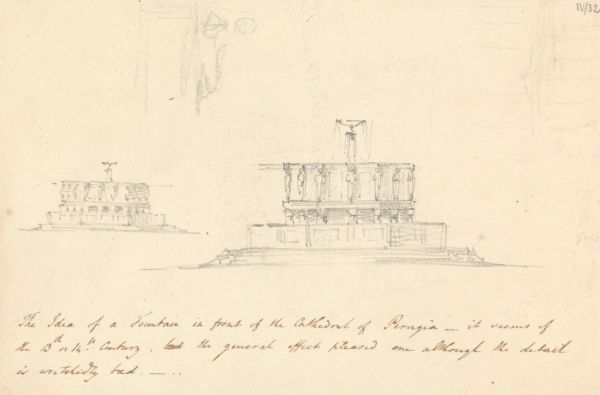 IV/32
The Idea of a Fountain in front of the Cathedral of Perugia —. it seems of
the 13th or 14th Century. but the general effect pleased me although the detail
is wretchedly bad. — ..